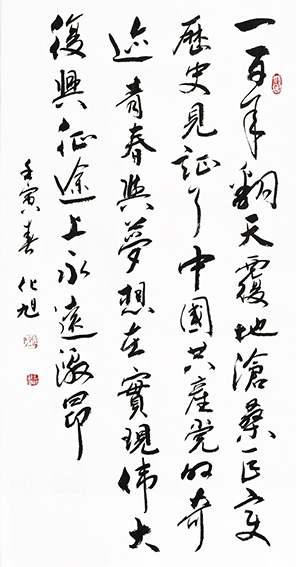 一百年翻天覆地滄桑巨变
歷史見証了中國共產党的奇
迹青春與夢想在實現伟大
復興征途上永遠激昂
壬寅春 化旭